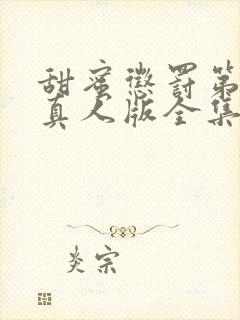 甜蜜惩罚第
真人版全集
炎宗